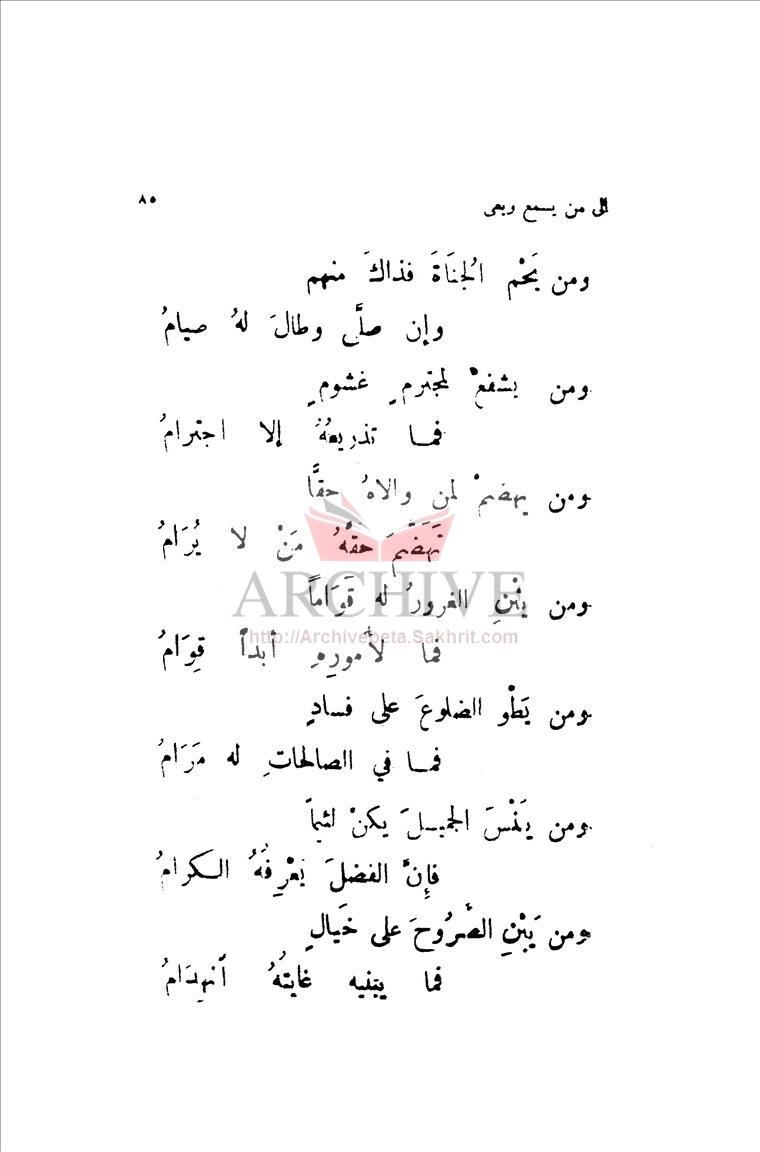 إلى من يسمع ويعى
٨٥
ومن يَحْمِ الجُنَاةَ فذاكَ منهم
وإن صلَّى وطالَ لهُ صيامُ
ومن يشفعْ لمجترمٍ غشومٍ
فما تذريعُهُ إلا اجترامُ
ومن يهضمْ لمن والاهُ حقًّا
تَهَضَّمَ حقَّهُ مَنْ لا يُرَامُ
ARCHIVE
ومن يَبْنِ الغرورُ له قَوَاماً
http://Archivebeta.Sakhrit.com
فما لأمورِهِ أبداً قِوَامُ
ومن يَطْوِ الضلوعَ على فسادٍ
فما في الصالحاتِ له مَرَامُ
ومن يَنْسَ الجميلَ يكنْ لئيماً
فإِنَّ الفضلَ يَعْرِفُهُ الكرامُ
ومن يَبْنِ الصُّرُوحَ على خَيالٍ
فما يبنيه غايتُهُ آنهِدَامُ